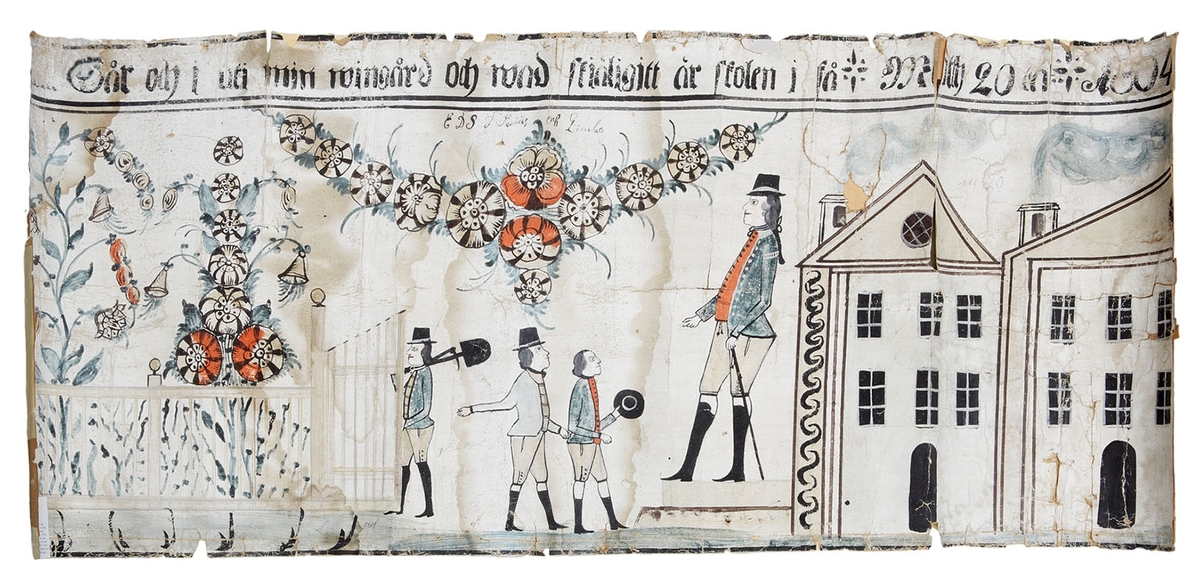 Går och i uti min wingård och wad skiäligitt är skolen i få Matth 20 1804
EDS
och